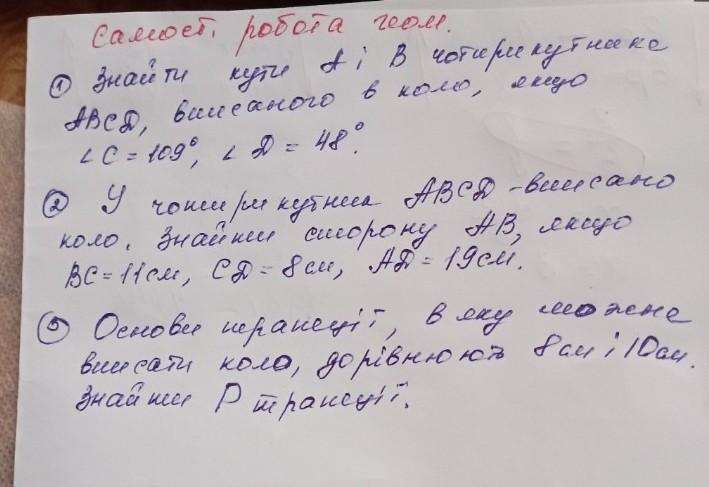 Самост. робота геом.
① Знайти кути A і B чотирикутника
ABCD, вписаного в коло, якщо
∠C = 109°, ∠D = 48°.
② У чотирикутник ABCD - вписано
коло. Знайти сторону AB, якщо
BC = 11 см, CD = 8 см, AD = 19 см.
③ Основи трапеції, в яку можна
вписати коло, дорівнюють 8 см і 10 см.
Знайти P трапеції.